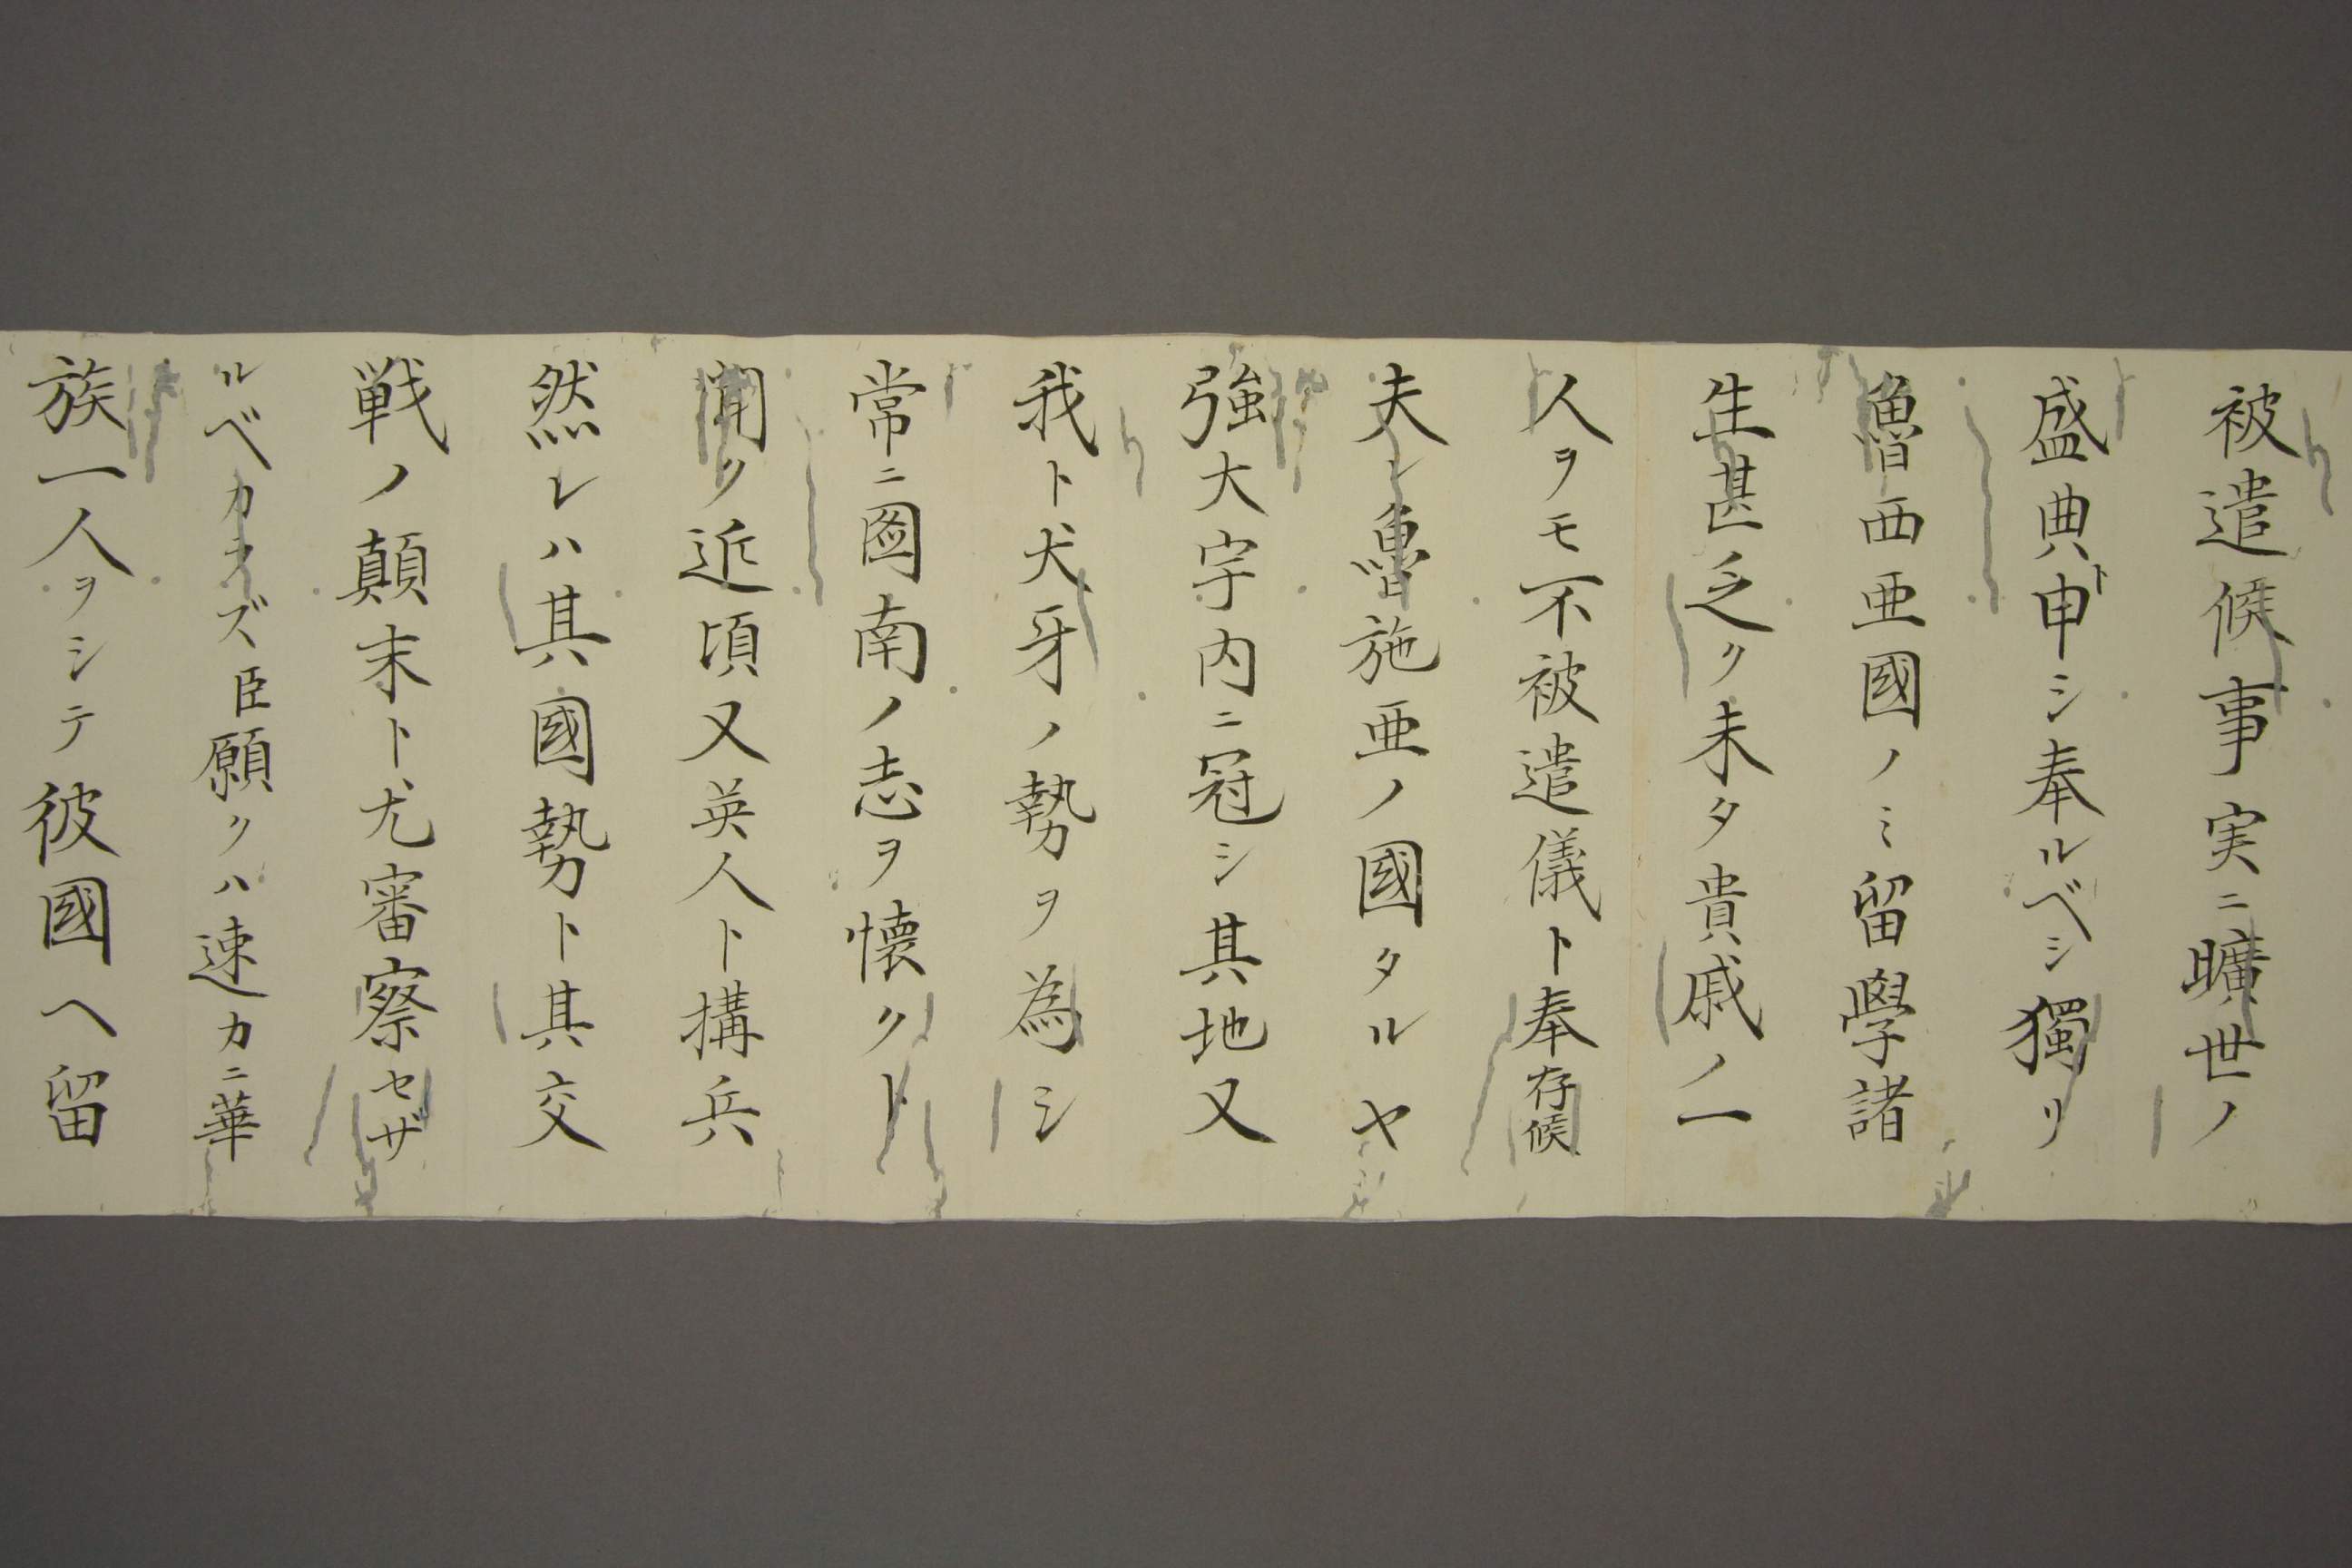 被遣候事実ニ曠世ノ
盛典ト申シ奉ルベシ獨リ
魯西亜國ノミ留學諸
生甚乏ク未タ貴戚ノ一
人ヲモ不被遣儀ト奉存候
夫レ魯施亜ノ國タルヤ
強大宇内ニ冠シ其地又
我ト犬牙ノ勢ヲ為シ
常ニ圖南ノ志ヲ懐クト
聞ク近頃又英人ト構兵
然レハ其國勢ト其交
戦ノ顛末ト尤審察セザ
ルベカラズ臣願クハ速カニ華
族一人ヲシテ彼國ヘ留